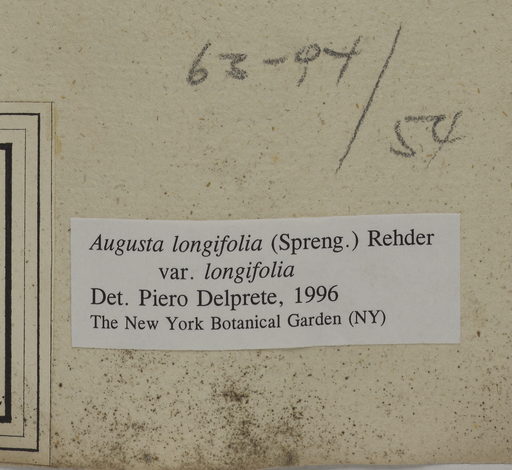 63-94/54
Augusta longifolia (Spreng.) Rehder
var. longifolia
Det. Piero Delprete, 1996
The New York Botanical Garden (NY)